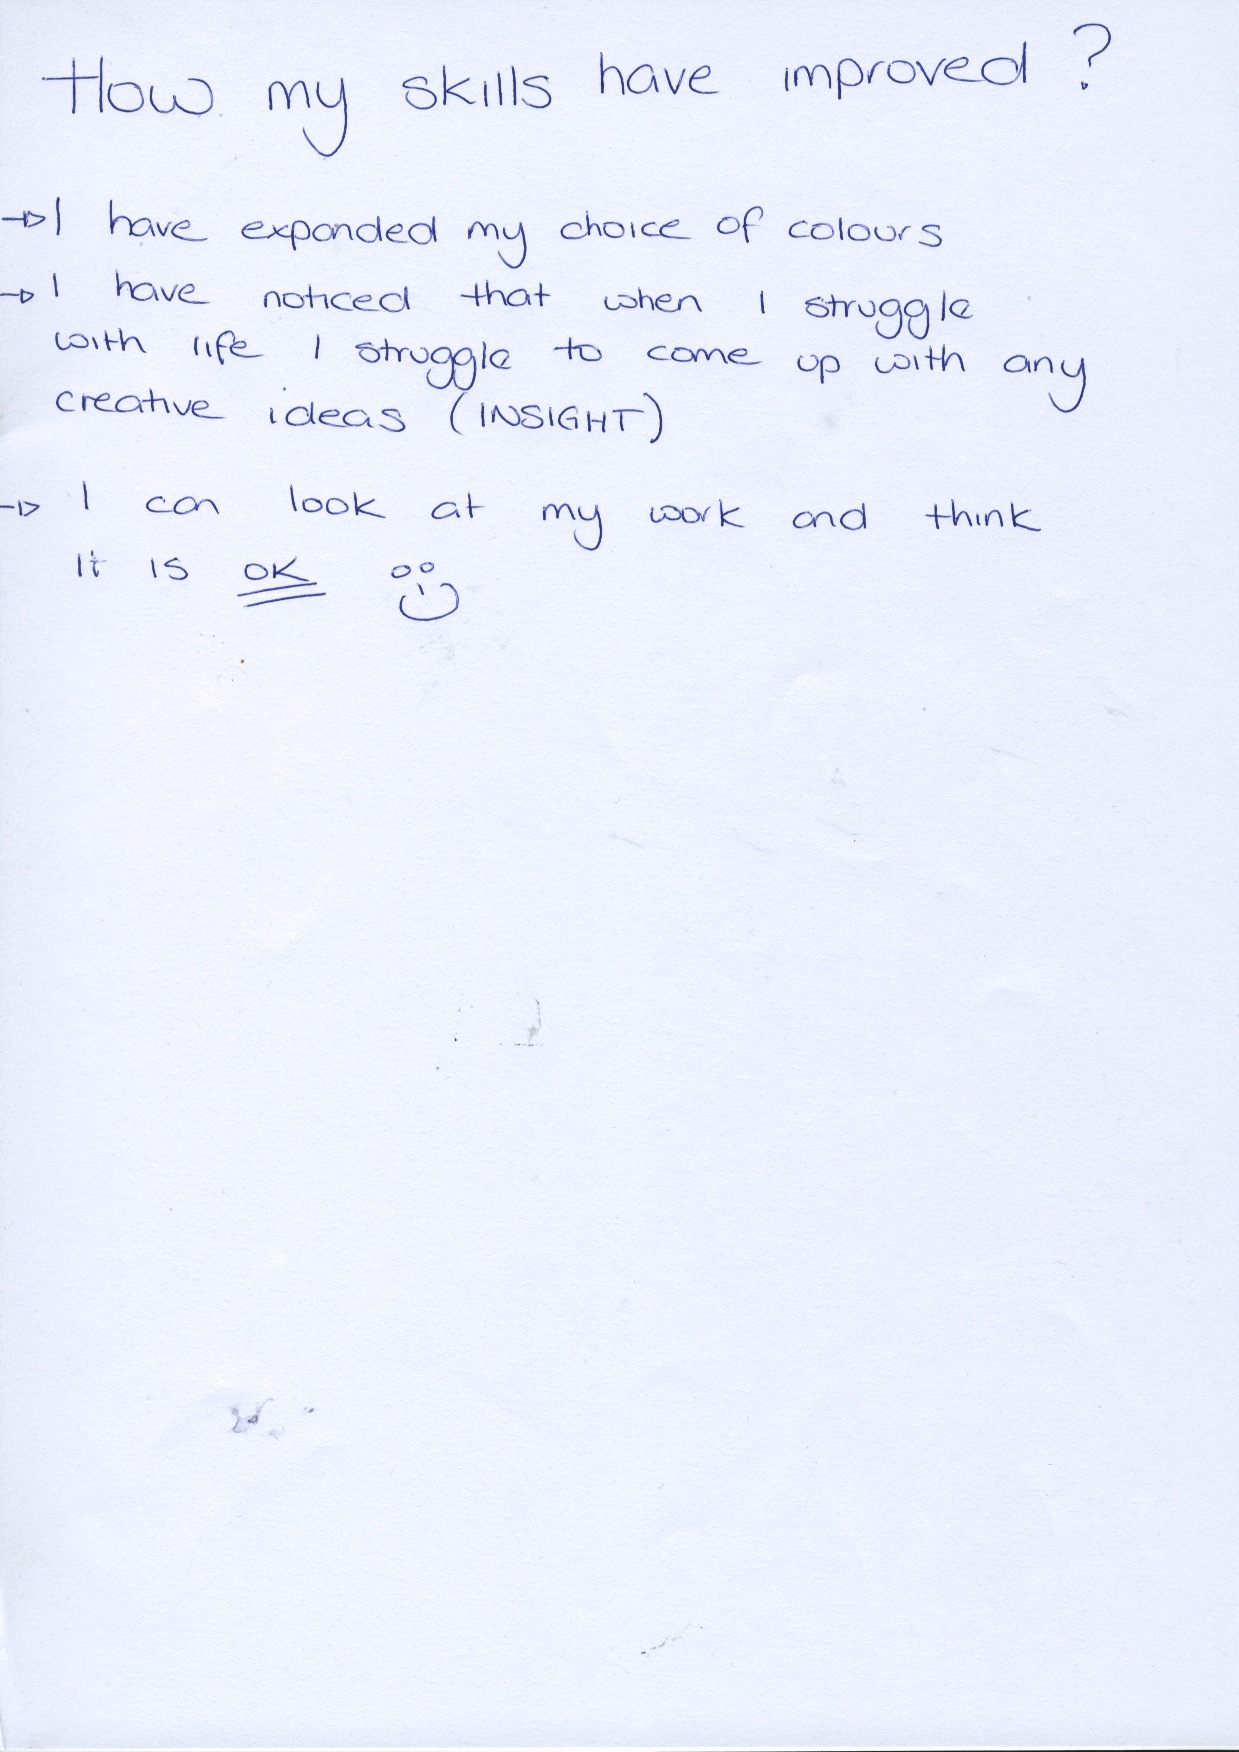 How my skills have improved ?
→ I have expanded my choice of colours
→ I have noticed that when I struggle
with life I struggle to come up with any
creative ideas (INSIGHT)
→ I can look at my work and think
it is OK